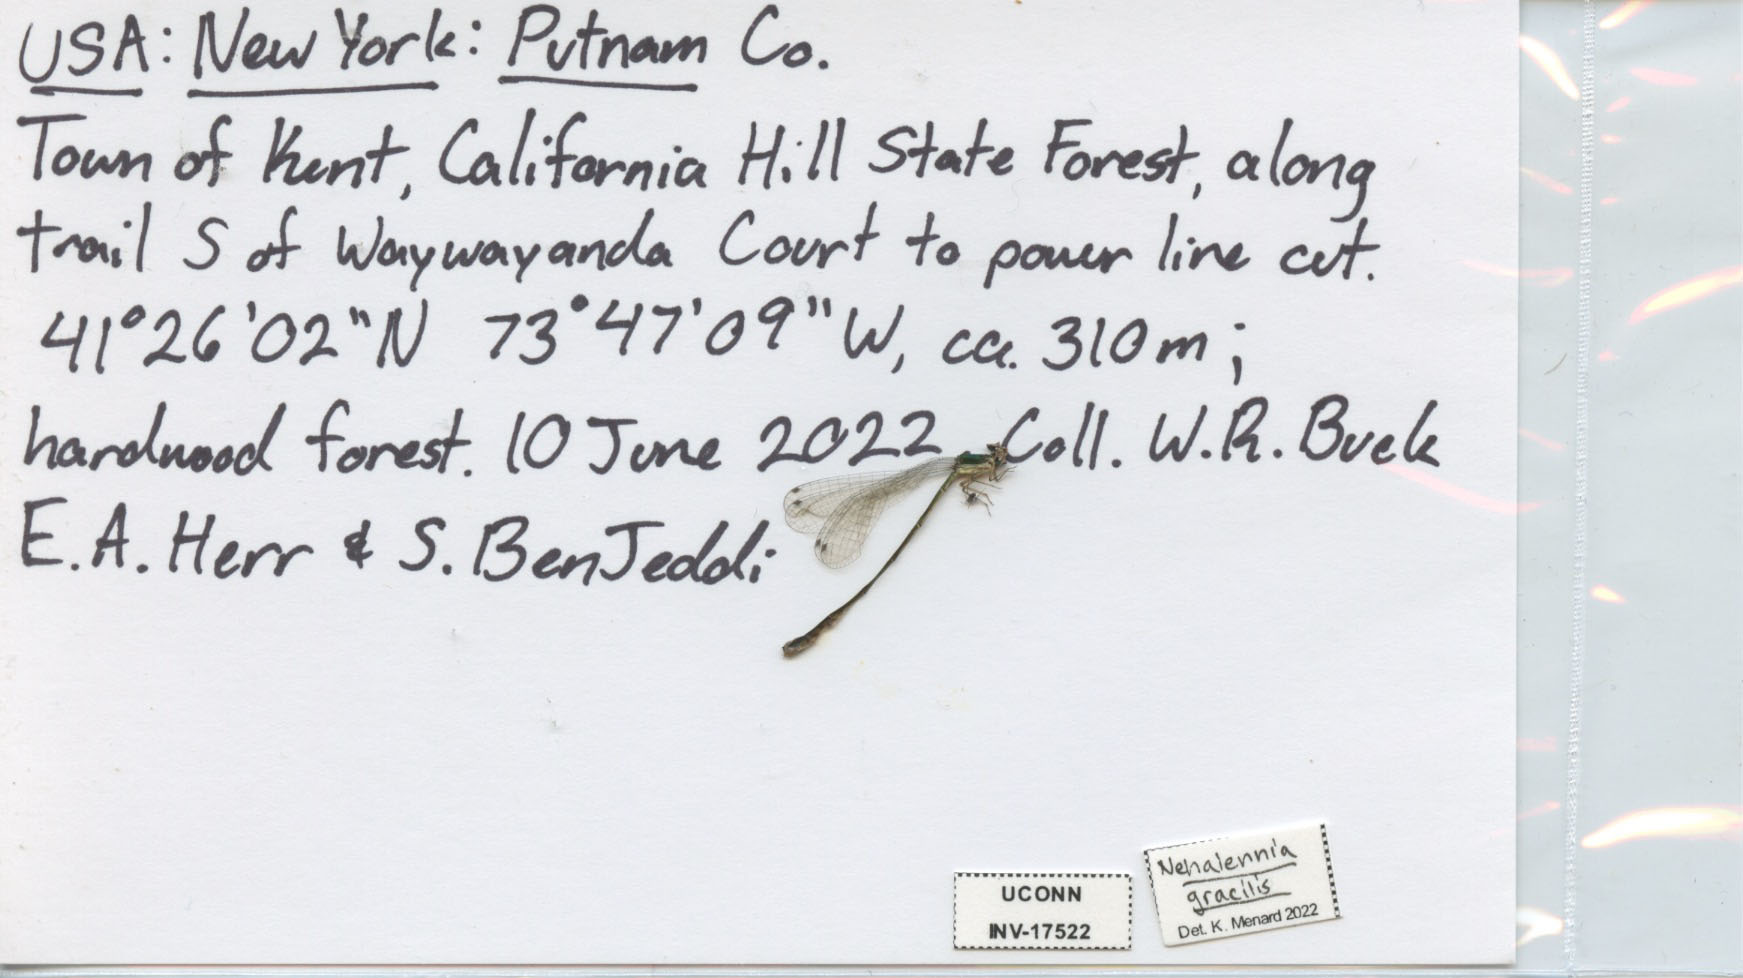 USA: New York: Putnam Co.
Town of Kent, California Hill State Forest, along
trail S of Waywayanda Court to power line cut.
41°26'02"N 73°47'09"W, ca. 310m;
hardwood forest. 10 June 2022 Coll. W.R. Buck
E.A. Herr & S. BenJeddi
UCONN
INV-17522
Nehalennia
gracilis
Det. K. Menard 2022